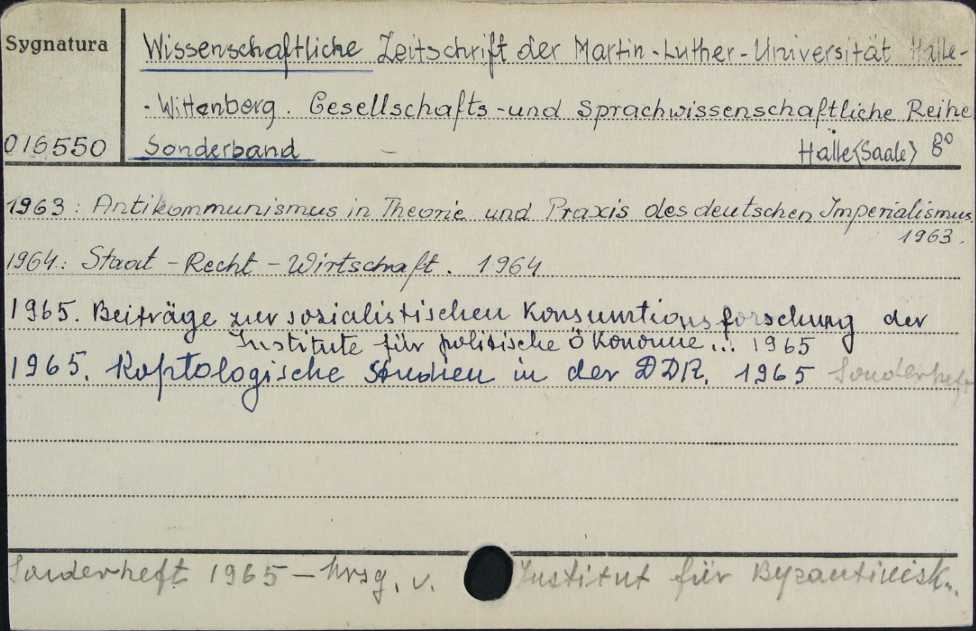 Sygnatura
Wissenschaftliche Zeitschrift der Martin-Luther-Universität Halle-
-Wittenberg. Gesellschafts-und Sprachwissenschaftliche Reihe
016550
Sonderband Halle(Saale) 8º
1963: Antikommunismus in Theorie und Praxis des deutschen Imperialismus
1963.
1964: Staat-Recht-Wirtschaft. 1964
1965. Beiträge zur sozialistischen Konsumtionsforschung der
Institute für politische Ökonomie... 1965
1965. Koptologische Studien in der DDR. 1965 Sonderheft
Sonderheft 1965 - hrsg. v. Institut für Byzantinistk.